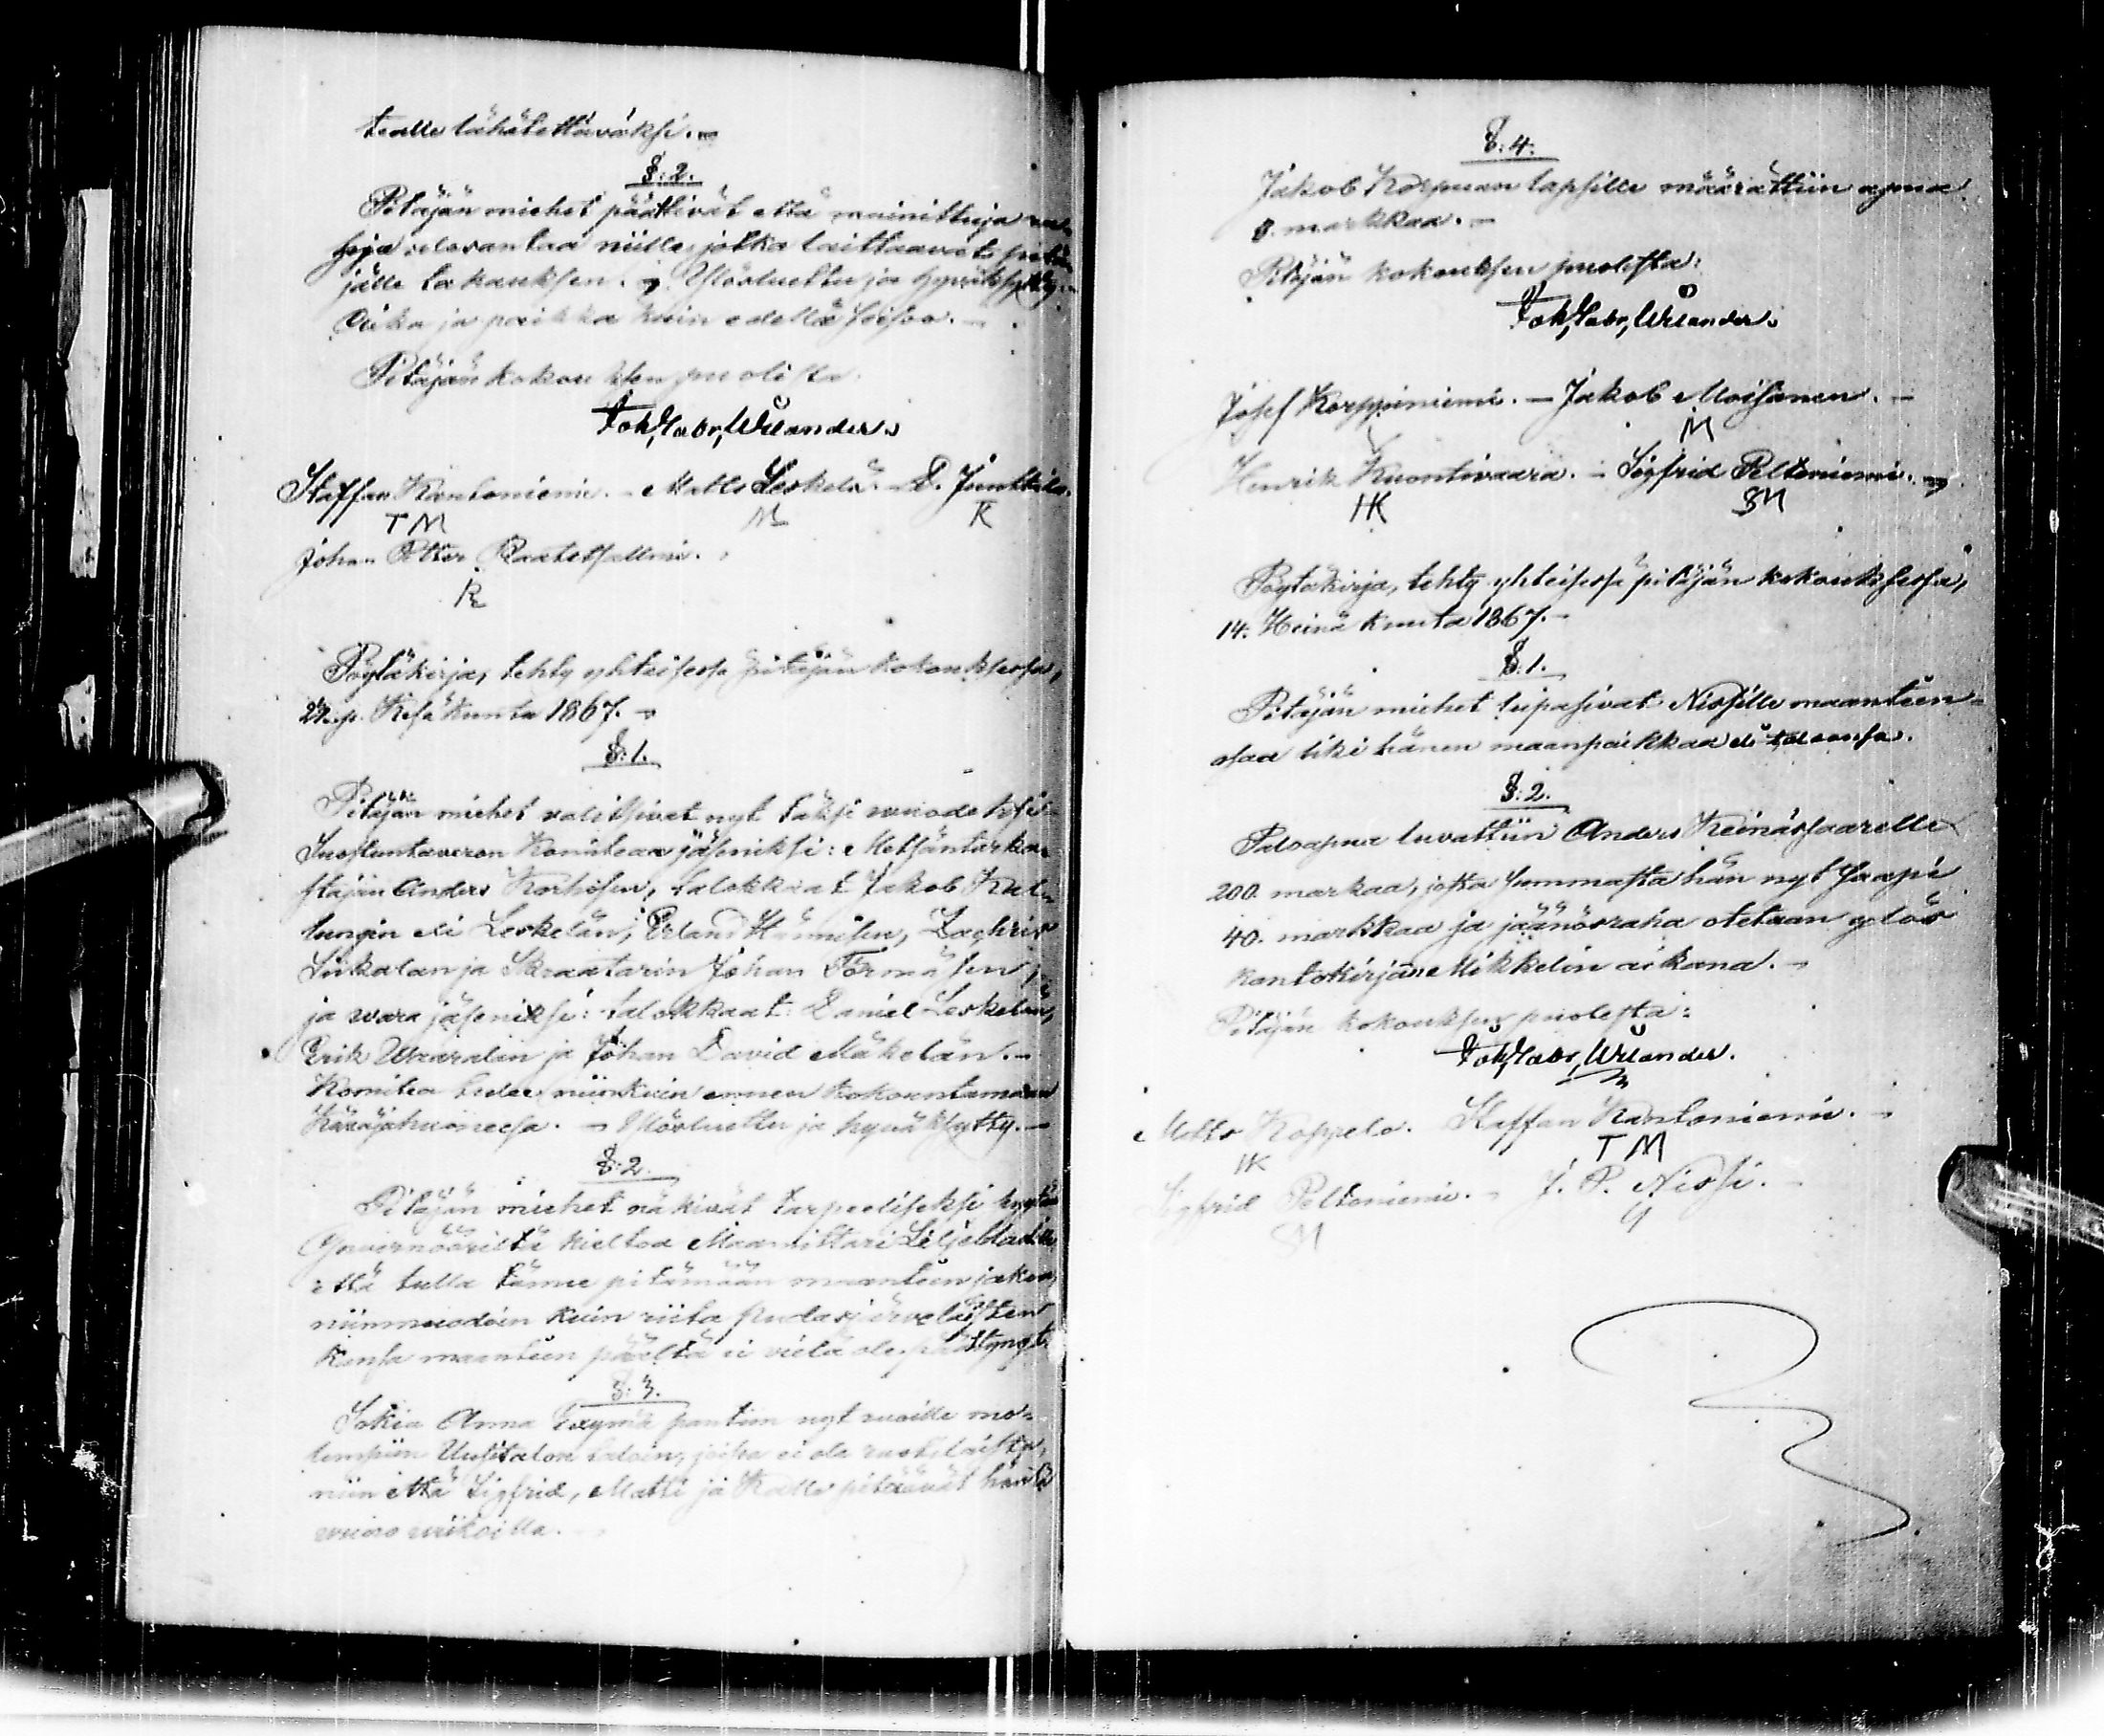 tealle lähätettäväksi.
§: 2.
Pitäjän miehet päättivät että mainittuja ra-
hoja ulosantaa niille, jotka laittaavat pitä-
jälle takauksen. Ylösluettu ja hyväksytty.
Aika ja paikka kuin edellä seisoo. –
Pitäjän kokouksen puolesta
Joh. Gabr. Welander.
Staffan Kantoniemi. – Matts Leskelä. – D. Junttila.
TM M K
Johan Petter Raatesalmi.
R
Pöytäkirja, tehty yhteisessä pitäjän kokouksessa,
Kesäkuuta 1867. –
§: 1.
Pitäjän miehet valitsivat nyt täksi vuodeksi
Suostuntaveron Komitean jäseniksi: Metsäntarka-
stajan Anders Korhosen, talokkaat Jakob Kal-
lungin eli Leskelän, Erland Hännisen, Zachris
Siikalan ja Skraatarin Johan Törmäsen,
ja vara jäseniksi: talokkaat: Daniel Leskelän,
Erik Waaralin ja Johan David Mäkelän. –
Komitea tulee niinkuin ennen kokountumaan
Käräjähuoneesa. – Ylösluettu ja hyväksytty. –
§: 2.
Pitäjän miehet näkivät tarpeeliseksi
Guvernööriltä kieltoa Maamittari Liljebladille
että tulla tänne pitämään maantien jakoa,
niinmuodoin kuin riita Pudasjärveläisten
kansa maantien päältä ei vielä ole päättynyt.
§: 3.
Anna pantiin nyt
Uusitalon taloin, ei ole
niin että Sigfrid, Matti ja Kalle pitäävät häntä
vuoro viikoilla.
§: 4.
Jakob Korpuan lapsille määrättiin apua
8. markkaa. –
Pitäjän kokouksen puolesta:
Joh. Gabr. Welander.
Josef Korppiniemi. – Jakob Moisanen. –
M
Henrik Kuontivaara. – Sigfrid Peltoniemi.
HK SM
Pöytäkirja, tehty yhteisessä pitäjän kokouksessa,
14. Heinä kuuta 1867. –
§: 1.
Pitäjän miehet lupasivat Nissille maantien
osaa liki hänen maanpaikkaa eli taloansa.
§: 2.
Paloapua luvattiin Anders Keinässaarelle
200. markaa, josta summasta hän nyt saapi
40. markkaa ja jäänösraha otetaan ylös
kantokirjan Mikkelin aikana. –
Pitäjän kokouksen puolesta:
Joh. Gabr. Welander.
Matts Koppelo. Staffan Kantoniemi. –
HK TM
Sigfrid Peltoniemi. – J. P. Nissi. –
SM